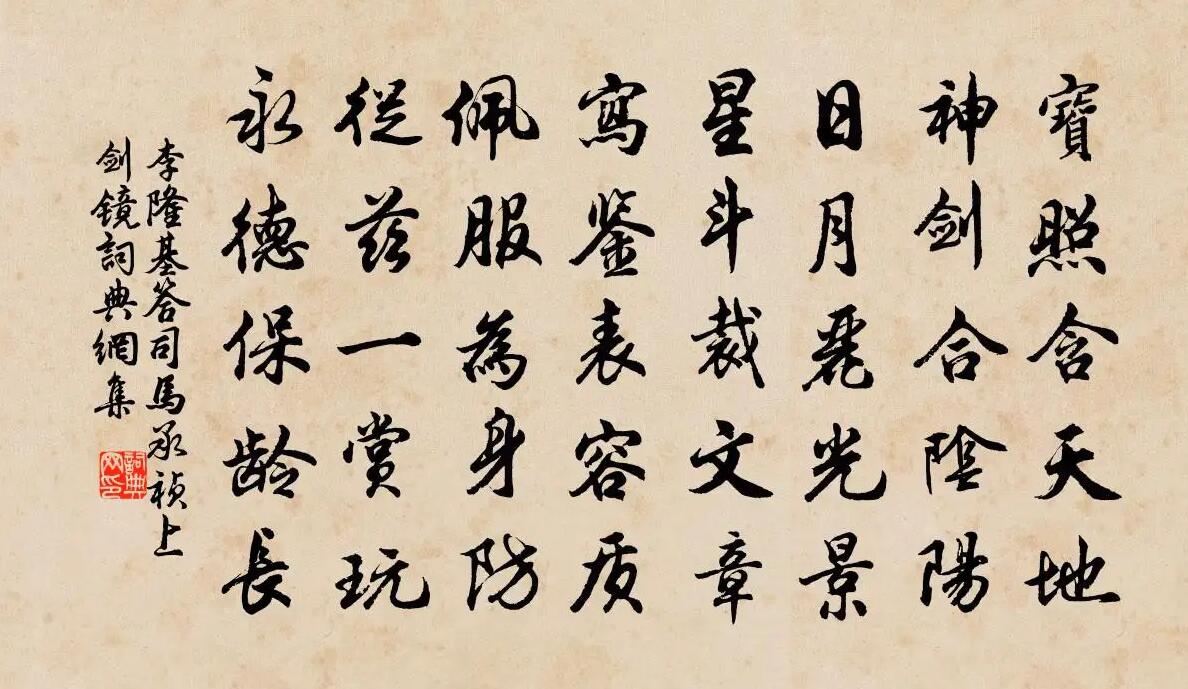 寶照含天地
神剑合陰陽
日月麗光景
星斗裁文章
寫鉴表容质
佩服為身防
從兹一賞玩
永德保龄長
李隆基答司馬承祯上
剑镜詞典網集
詞典
网印